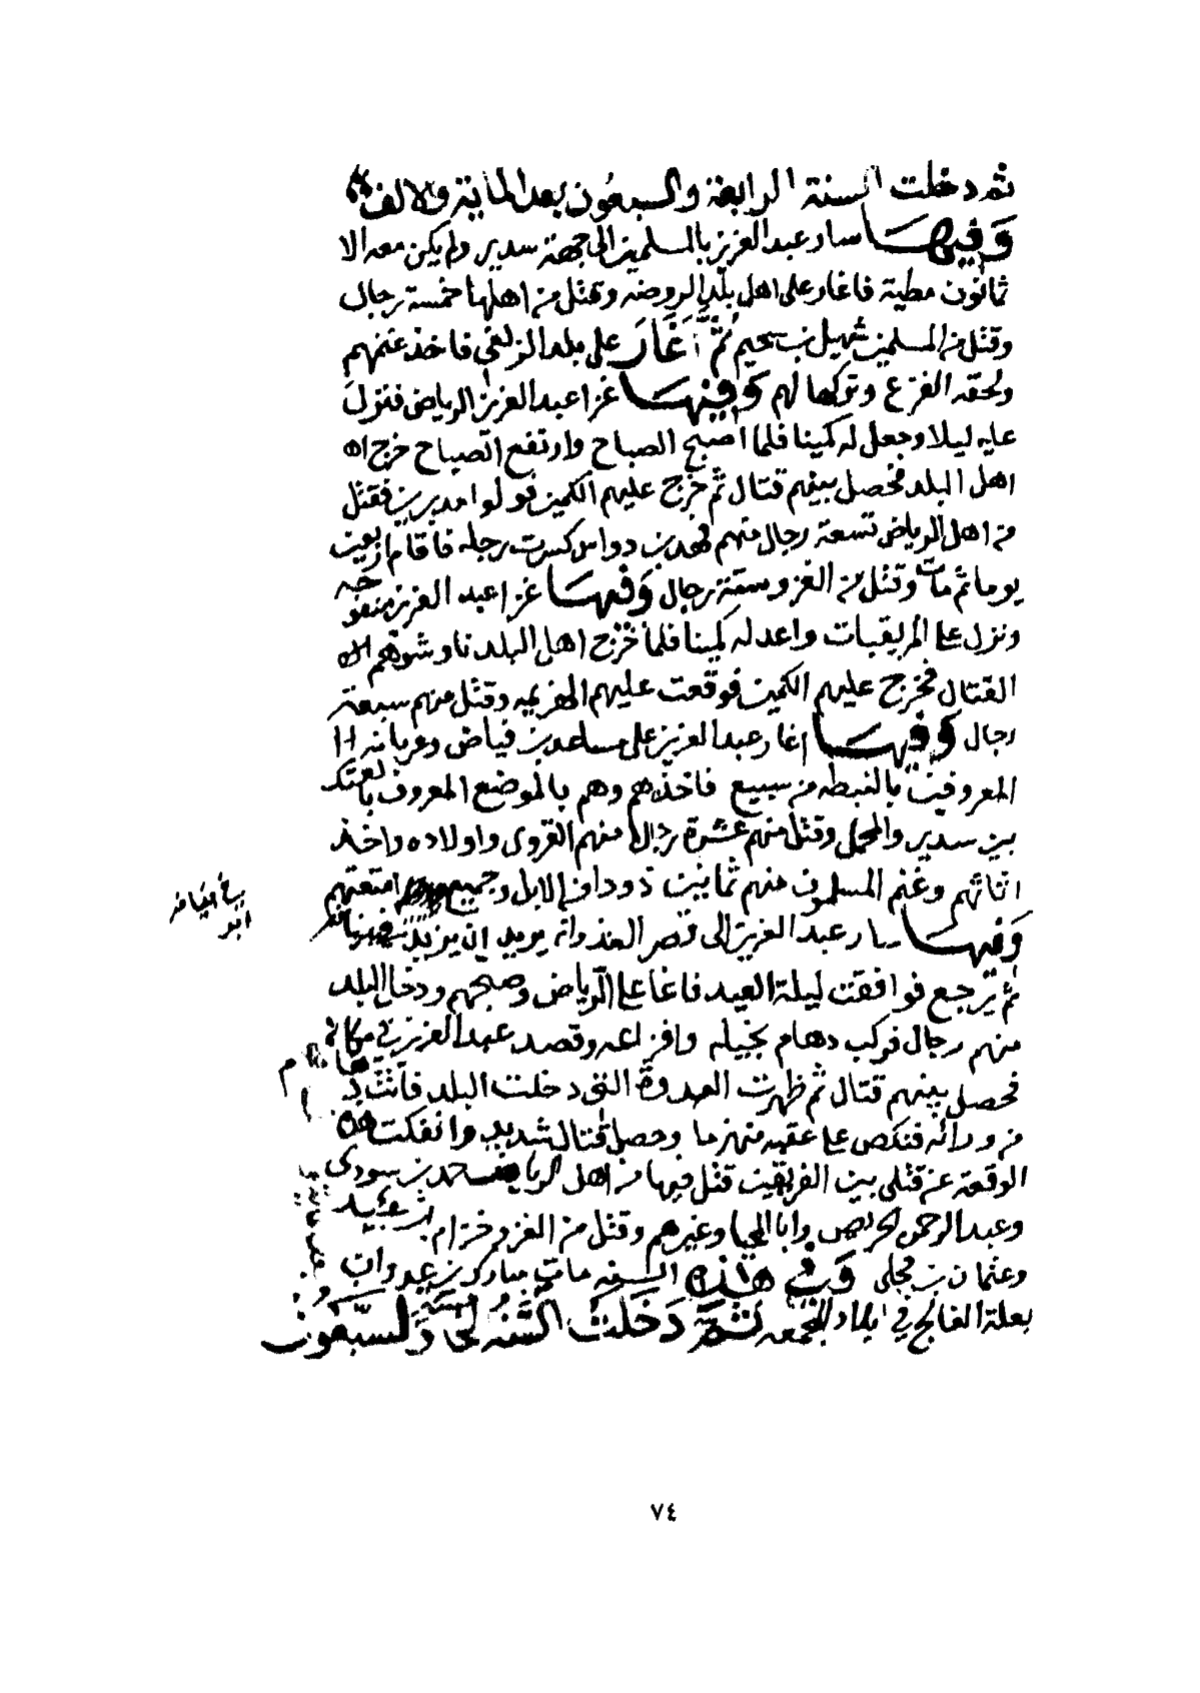 ثم دخلت السنة الرابعة والسبعون بعد الماية والالف
وَفيهَا سار عبد العزيز بالمسلمين الى جهة سدير ولم يكن معه الا
ثمانون مطية فاغار على اهل بلد الروضه وقتل من اهلها خمسة رجال
وقتل من المسلمين شهيل بن سحيم ثمَّ أغَارَ على بلد الزلفي فاخذ غنمهم
ولحقه الفزع وتركها لهم وَفيهَا غزا عبد العزيز الرياض فنزل
عليه ليلا وجعل له كمينا فلما اصبح الصباح وارتفع الصياح خرج اه
اهل البلد فحصل بينهم قتال ثم خرج عليهم الكمين فولوا مدبرين فقتل
من اهل الرياض تسعة رجال منهم فهد بن دواس كسرت رجله فاقام اربعين
يوما ثم مات وقتل من الغزو ستة رجال وَفيهَا غزا عبد العزيز منفوحه
ونزل على المريقبات واعد له كمينا فلما خرج اهل البلد ناوشوهم
القتال فخرج عليهم الكمين فوقعت عليهم الهزيمه وقتل منهم سبعة
رجال وَفيهَا اغار عبد العزيز على مساعد بن فياض وعربانه
المعروفين بالنبطه من سبيع فاخذهم وهم بالموضع المعروف بالعتك
بين سدير والمحمل وقتل منهم عشرة رجال منهم القروي واولاده واخذ
اثاثهم وغنم المسلمون منهم ثمانين ذودا من الابل وجميع امتعتهم
وَفيهَا سار عبد العزيز الى قصر الغذوانه يريد ان يزيد في
ثم يرجع فوافقت ليلة العيد فاغا على الرياض وصبحهم ودخل البلد
منهم رجال فركب دهام بخيله وافزاعه وقصد عبد العزيز في مكانه
فحصل بينهم قتال ثم ظهرت العدوة التي دخلت البلد
من ورائه فنكص على عقبه منهزما وحصل قتال شديد وانفكت
الوقعة عن قتلى بين الفريقين قتل فيها من اهل الرياض حمد بن سودي
وعبد الرحمن الحريص وابا المحيا وغيرهم وقتل من الغزو خزام بن عبيد
وعثمان بن مجلي وَفي هاذه السنه مات مبارك بن عدوان
بعلة الفالج في بلد المجمعه ثمَّ دَخَلَت السَّنَه الخامسَة وَالسَّبعُون
٧٤